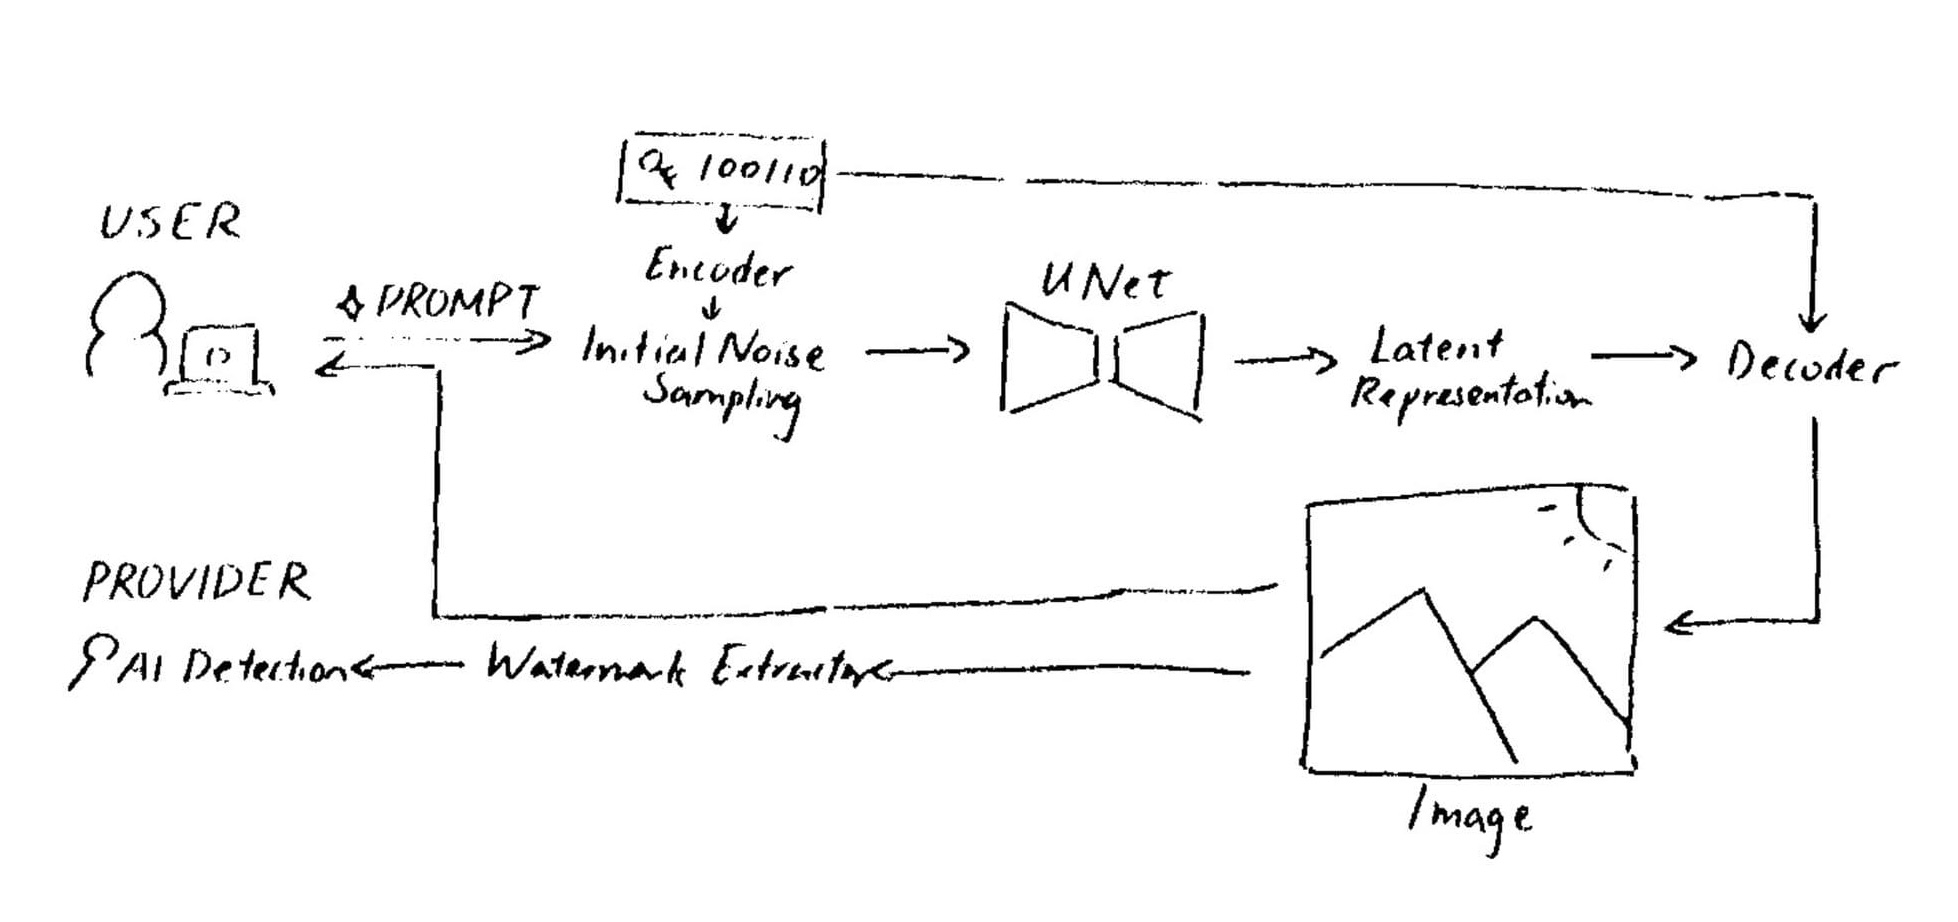 100110
USER
Encoder
UNet
PROMPT
Initial Noise
Sampling
Latent
Representation
Decoder
PROVIDER
AI Detection
Watermark Extractor
Image